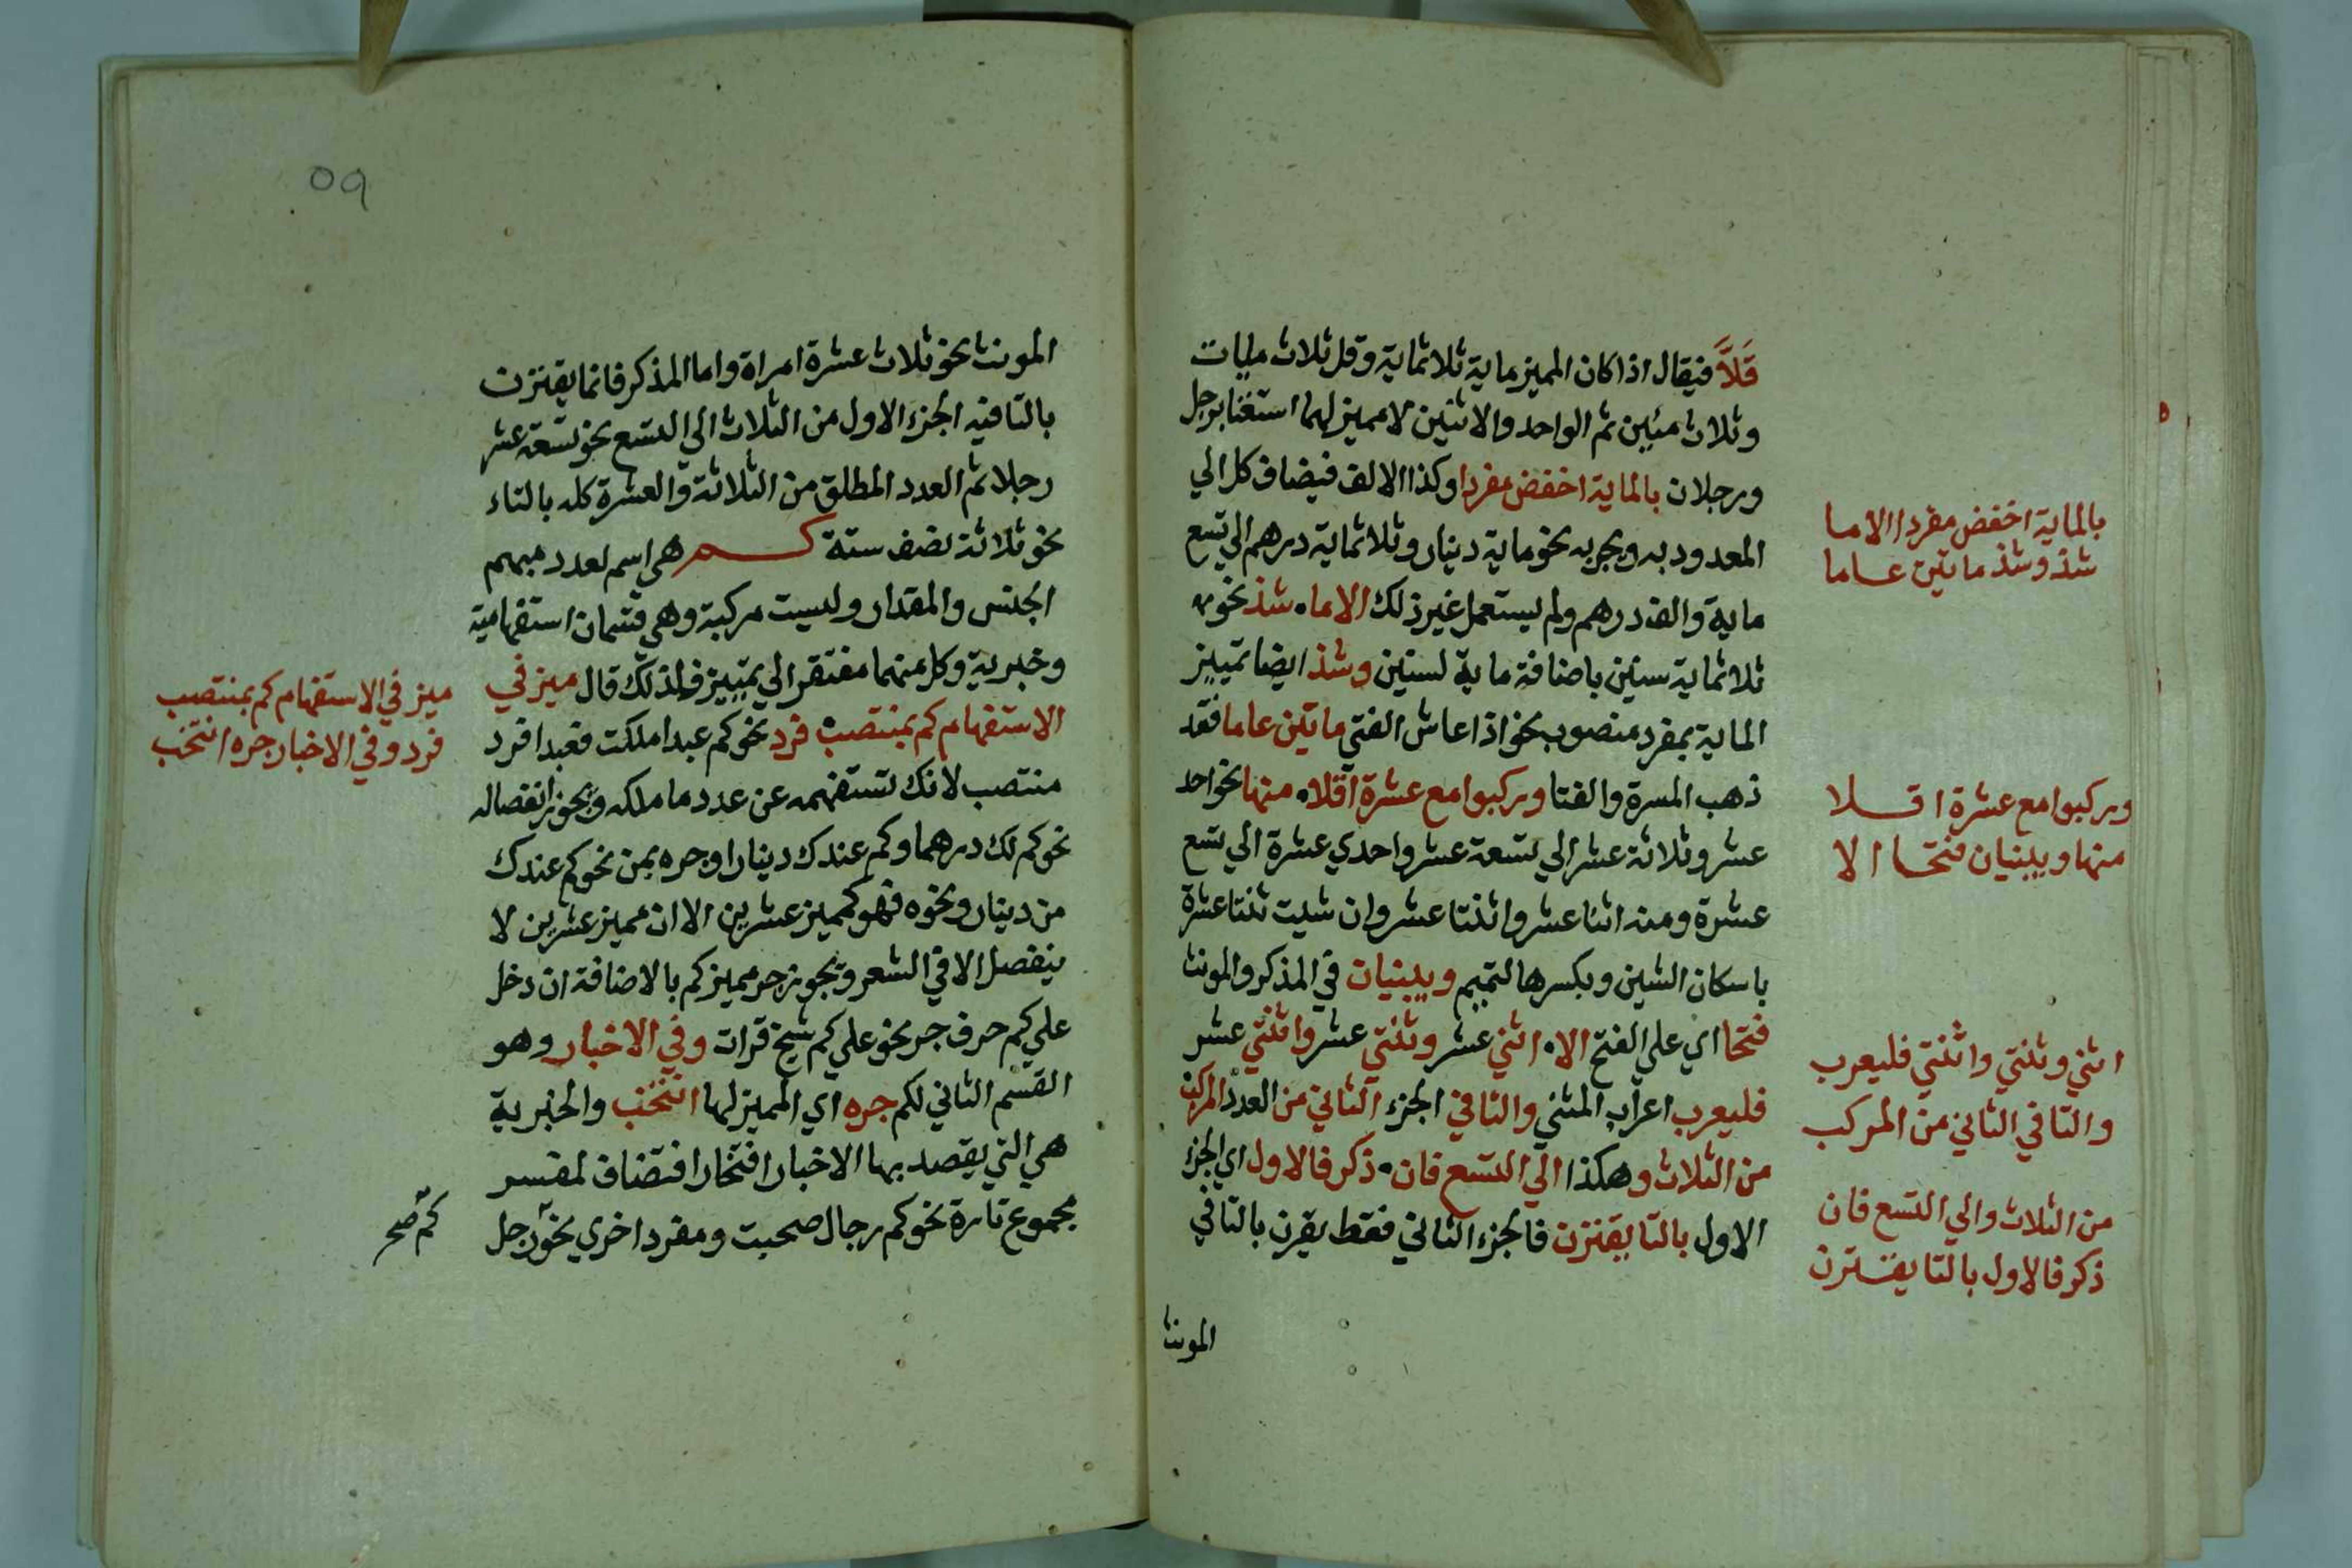 قَلاَّ فيقال اذا كان المميز ماية ثلاثماية وقل ثلاث مايات
وثلاث مئين ثم الواحد والاثنين لا مميز لهما استغنا برجل
ورجلان بالماية اخفض مفردا وكذا الالف فيضاف كل الي
المعدود به ويجر به نحو ماية دينار وثلاثماية درهم الي تسع
ماية والف درهم ولم يستعمل غير ذلك الا ما شذ نحو
ثلاثماية سنين باضافة ماية لسنين وشذ ايضا تمييز
الماية بمفرد منصوب نحو اذا عاش الفتي ماتين عاما فقد
ذهب المسرة والفتا وركبوا مع عشرة اقلا منها نحو احد
عشر وثلاثة عشر الي تسعة عشر واحدي عشرة الي تسع
عشرة ومنه اثنا عشر واثنتا عشر وان شيت ثنتا عشرة
باسكان الشين وبكسرها لتميم ويبنيان في المذكر والمونث
فتحا اي علي الفتح الا اثني عشر وثنتي عشر واثنتي عشر
فليعرب اعراب المثني والتا في الجزء الثاني من العدد المركب
من الثلاث وهكذا الي التسع فان ذكر فالاول اي الجزء
الاول بالتا يقترن فالجزء الثاني فقط يقرن بالتا في
المونث
بالماية اخفض مفردا الا ما
شذ وشذ ماتين عاما
وركبوا مع عشرة اقلا
منها ويبنيان فتحا الا
اثني وثنتي واثنتي فليعرب
والتا في الثاني من المركب
من الثلاث والي التسع فان
ذكر فالاول بالتا يقترن
٥٩
المونث نحو ثلاث عشرة امراة واما المذكر فانما يقترن
بالتا فيه الجزء الاول من الثلاث الي التسع نحو تسعة عشر
رجلا ثم العدد المطلق من الثلاثة والعشرة كله بالتاء
نحو ثلاثة نصف ستة كم هي اسم لعدد مبهم
الجنس والمقدار وليست مركبة وهي قسمان استفهامية
وخبرية وكل منهما مفتقر الي تمييز فلذلك قال ميز في
الاستفهام كم بمنتصب فرد نحو كم عبدا ملكت فعبدا فرد
منتصب لانك تستفهمه عن عدد ما ملكه ويجوز انفصاله
نحو كم لك درهما وكم عندك دينارا وجره بمن نحو كم عندك
من دينار ونحوه فهو كمميز عشرين الا ان مميز عشرين لا
ينفصل الا في الشعر ويجوز جر مميز كم بالاضافة ان دخل
علي كم حرف جر نحو علي كم شيخ قرات وفي الاخبار وهو
القسم الثاني لكم جره اي المميز لها انتخب والخبرية
هي التي يقصد بها الاخبار افتخارا فتضاف لمفسر
مجموع تارة نحو كم رجال صحبت ومفرد اخري نحو رجل
ميز في الاستفهام كم بمنتصب
فرد وفي الاخبار جره انتخب
كم صح